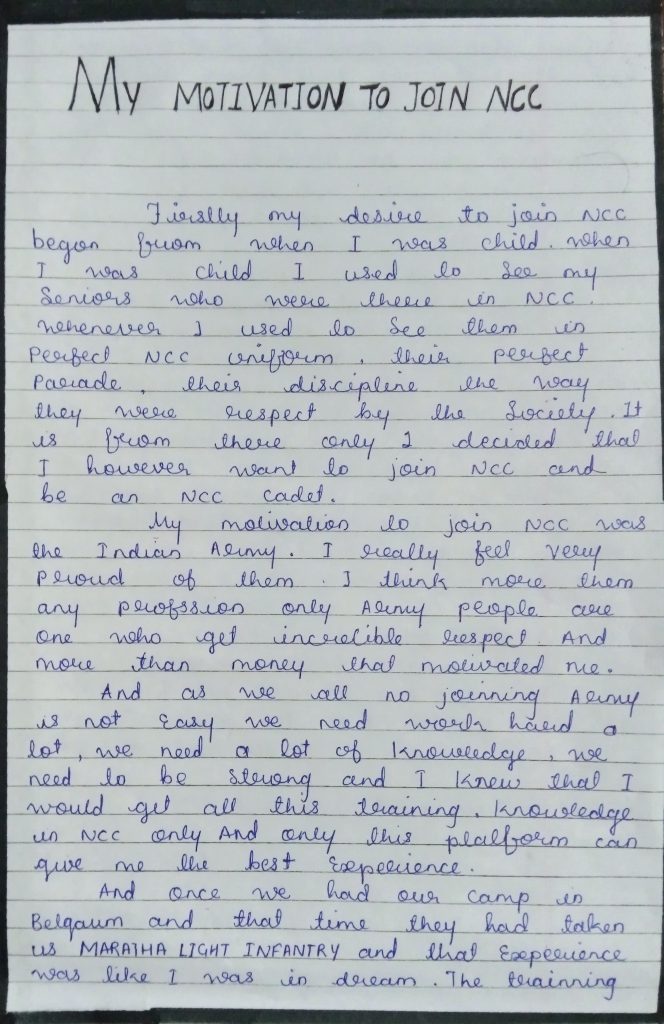 My MOTIVATION TO JOIN NCC
Firstly my desire to join NCC
began from when I was child. when
I was child I used to See my
Seniors who were there in NCC.
whenever I used to See them in
Perfect NCC uniform, their perfect
Parade, their discipline the way
they were respect by the Society. It
is from there only I decided that
I however want to join NCC and
be an NCC cadet.
My motivation to join NCC was
the Indian Army. I really feel very
Proud of them. I think more them
any profssion only Army people are
one who get incredible respect. And
more than money that motivated me.
And as we all no joinning Army
is not Easy we need work hard a
lot, we need a lot of knowledge, we
need to be strong and I knew that I
would get all this training, knowledge
in NCC only And only this platform can
give me the best Experience.
And once we had our camp in
Belgaum and that time they had taken
us MARATHA LIGHT INFANTRY and that Experience
was like I was in dream. The trainning